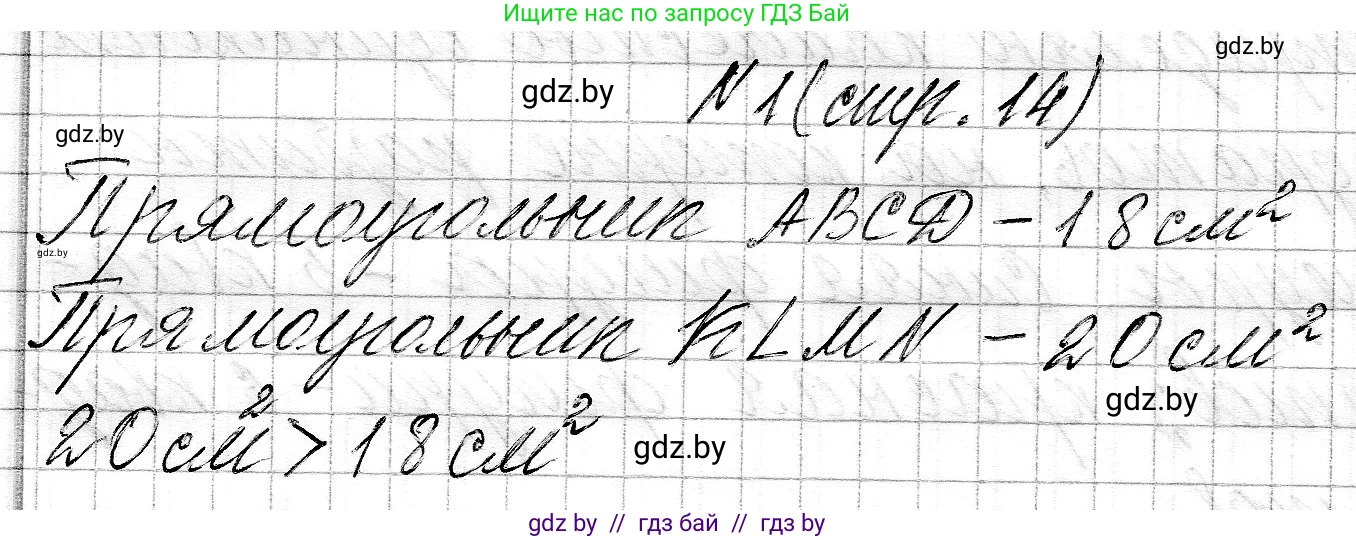 Ищите нас по запросу ГДЗ Бай
gdz.by
gdz.by
N 1 (стр. 14)
gdz.by
Прямоугольник ABCD – 18 см²
gdz.by
Прямоугольник KLMN – 20 см²
gdz.by
20 см² > 18 см²
gdz.by
gdz by // гдз бай // гдз by